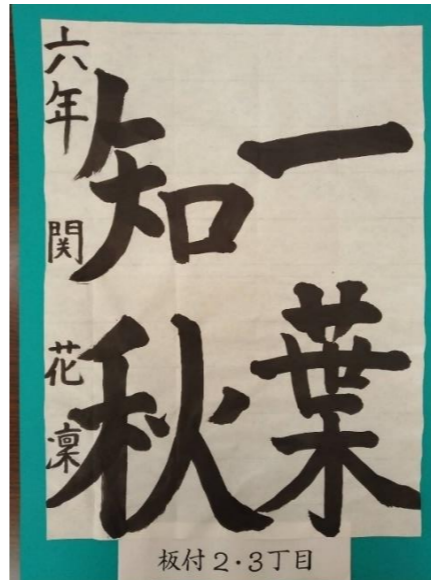 一葉
知秋
六年 関 花凜
板付2・3丁目